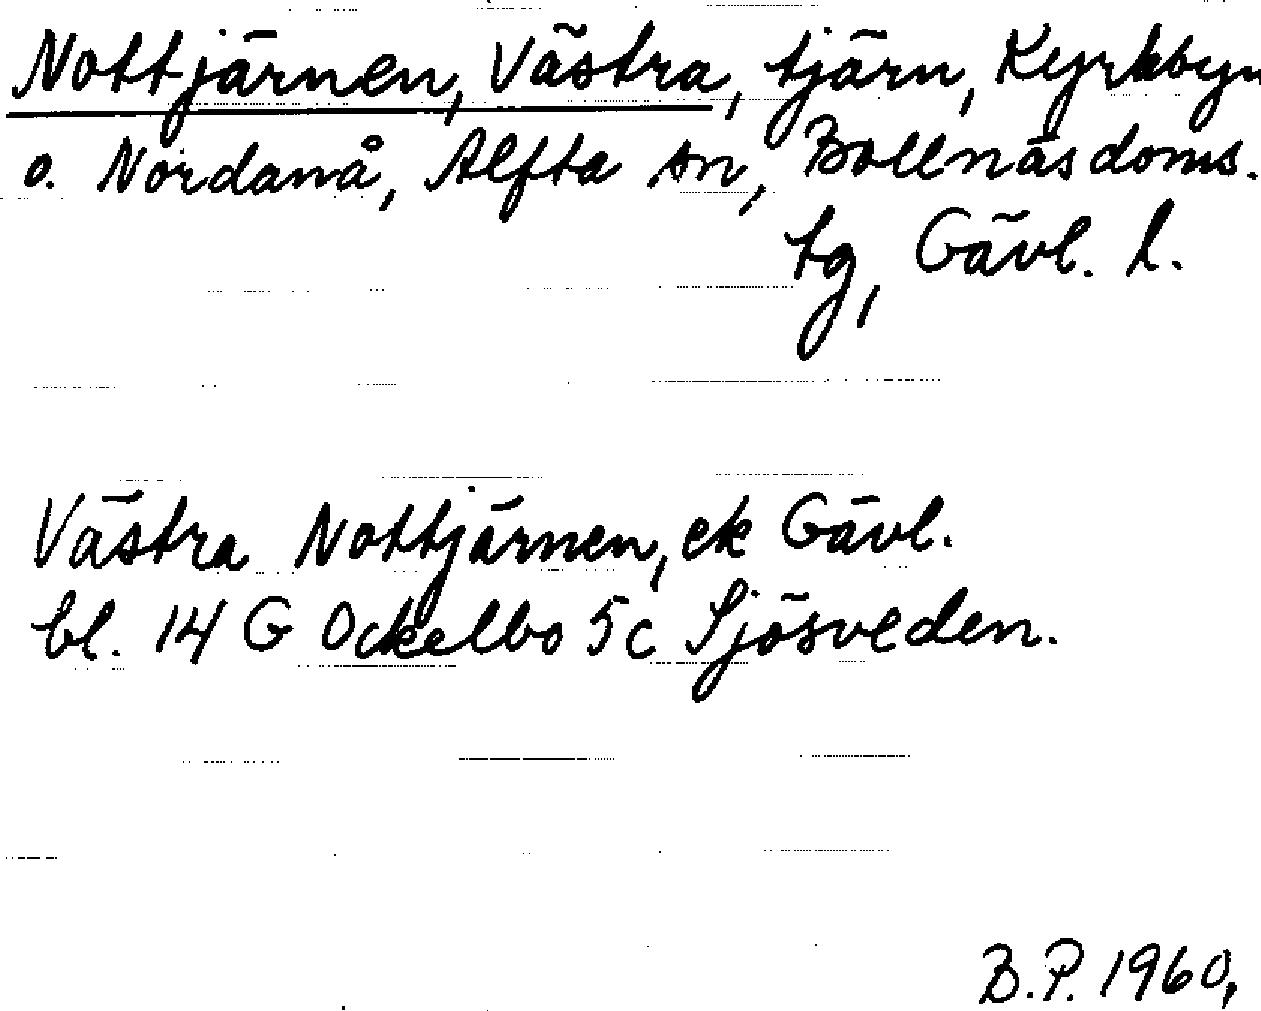 Nottjärnen, Västra, tjärn, Kyrkbyn
o. Nordanå, Alfta sn, Bollnäs doms.
tg, Gävl. l.
Västra Nottjärnen, ek Gävl.
bl. 14 G Ockelbo 5c Sjösveden.
B.P. 1960,